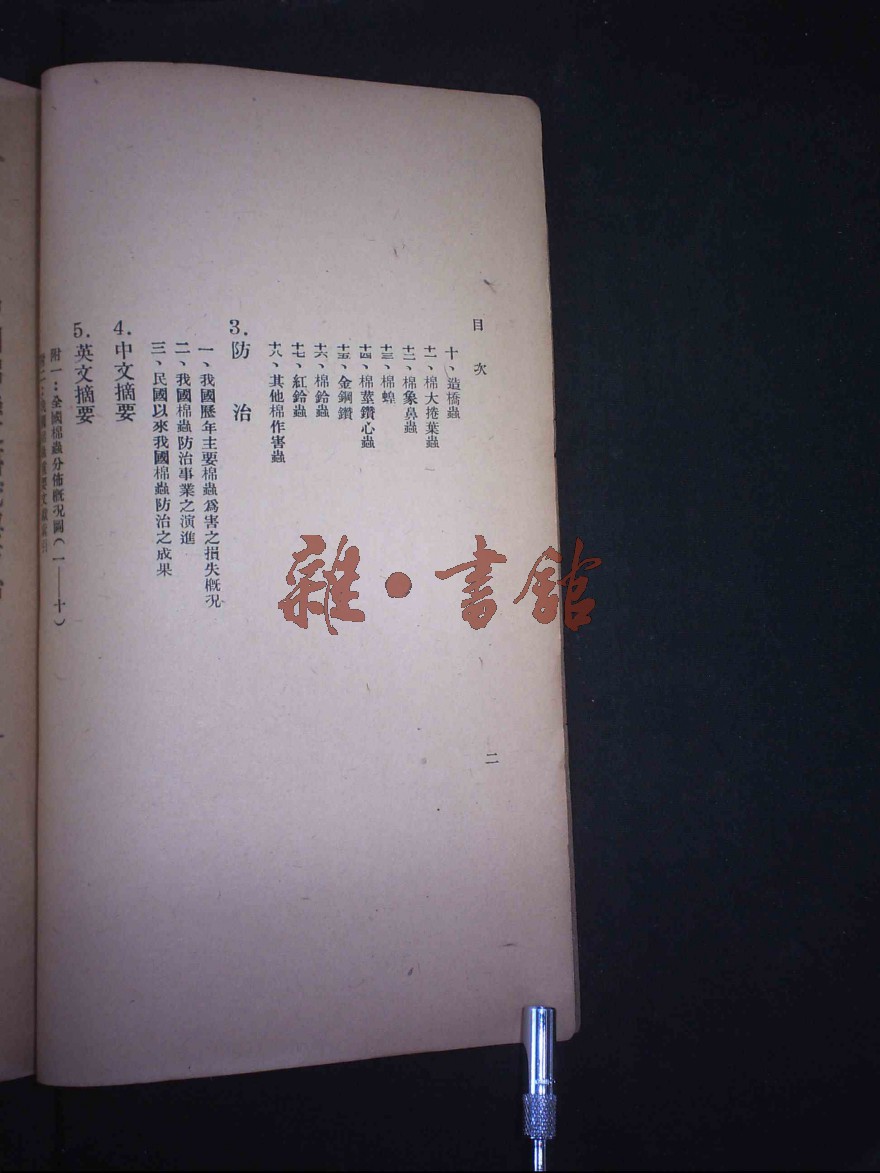 目次
二
十、造橋蟲
十一、棉大捲葉蟲
十二、棉象鼻蟲
十三、棉蝗
十四、棉莖鑽心蟲
十五、金鋼鑽
十六、棉鈴蟲
十七、紅鈴蟲
十八、其他棉作害蟲
3．防治
一、我國歷年主要棉蟲爲害之損失概況
二、我國棉蟲防治事業之演進
三、民國以來我國棉蟲防治之成果
4．中文摘要
5．英文摘要
附一：全國棉蟲分佈概況圖(一——十)
雜·書館